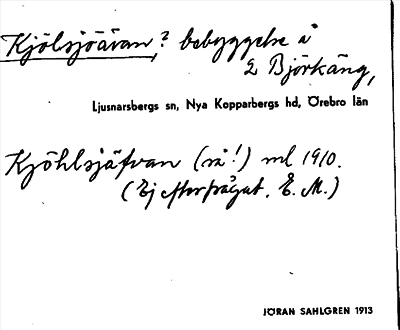 Kjölsjöävan? bebyggelse å
2 Björkäng,
Ljusnarsbergs sn, Nya Kopparbergs hd, Örebro län
Kjöhlsjäfvan (så!) ml 1910.
(Ej efterfrågat. E. M.)
JÖRAN SAHLGREN 1913